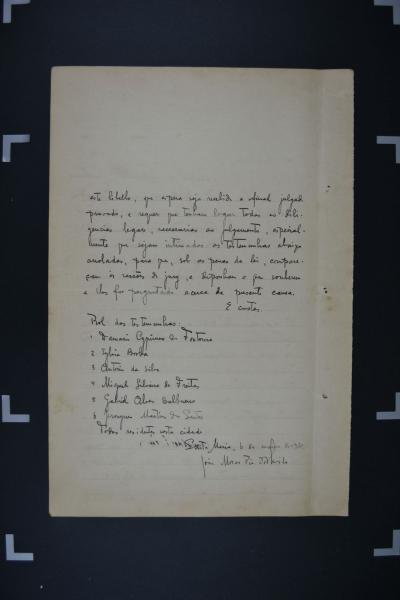 este libello, que espera seja recebido e afinal julgado
provado, e requer que tenham logar todas as dili-
gencias legaes, necessarias ao julgamento, especial-
mente que sejam intimadas as testemunhas abaixo
arroladas, para que, sob as penas da lei, compare-
çam ás sessões do jury, e deponham o que souberem
e lhes for perguntado acerca da presente causa.
E custas.
Rol das testemunhas:
1 Cypriano da
2 Sylvio Borba
3 Antonio da Silva
4 Miguel Silvano de Freitas
5 Gabriel Alves
6 Martins dos Santos
Todos residentes nesta cidade
Santa Maria, 6 de
João